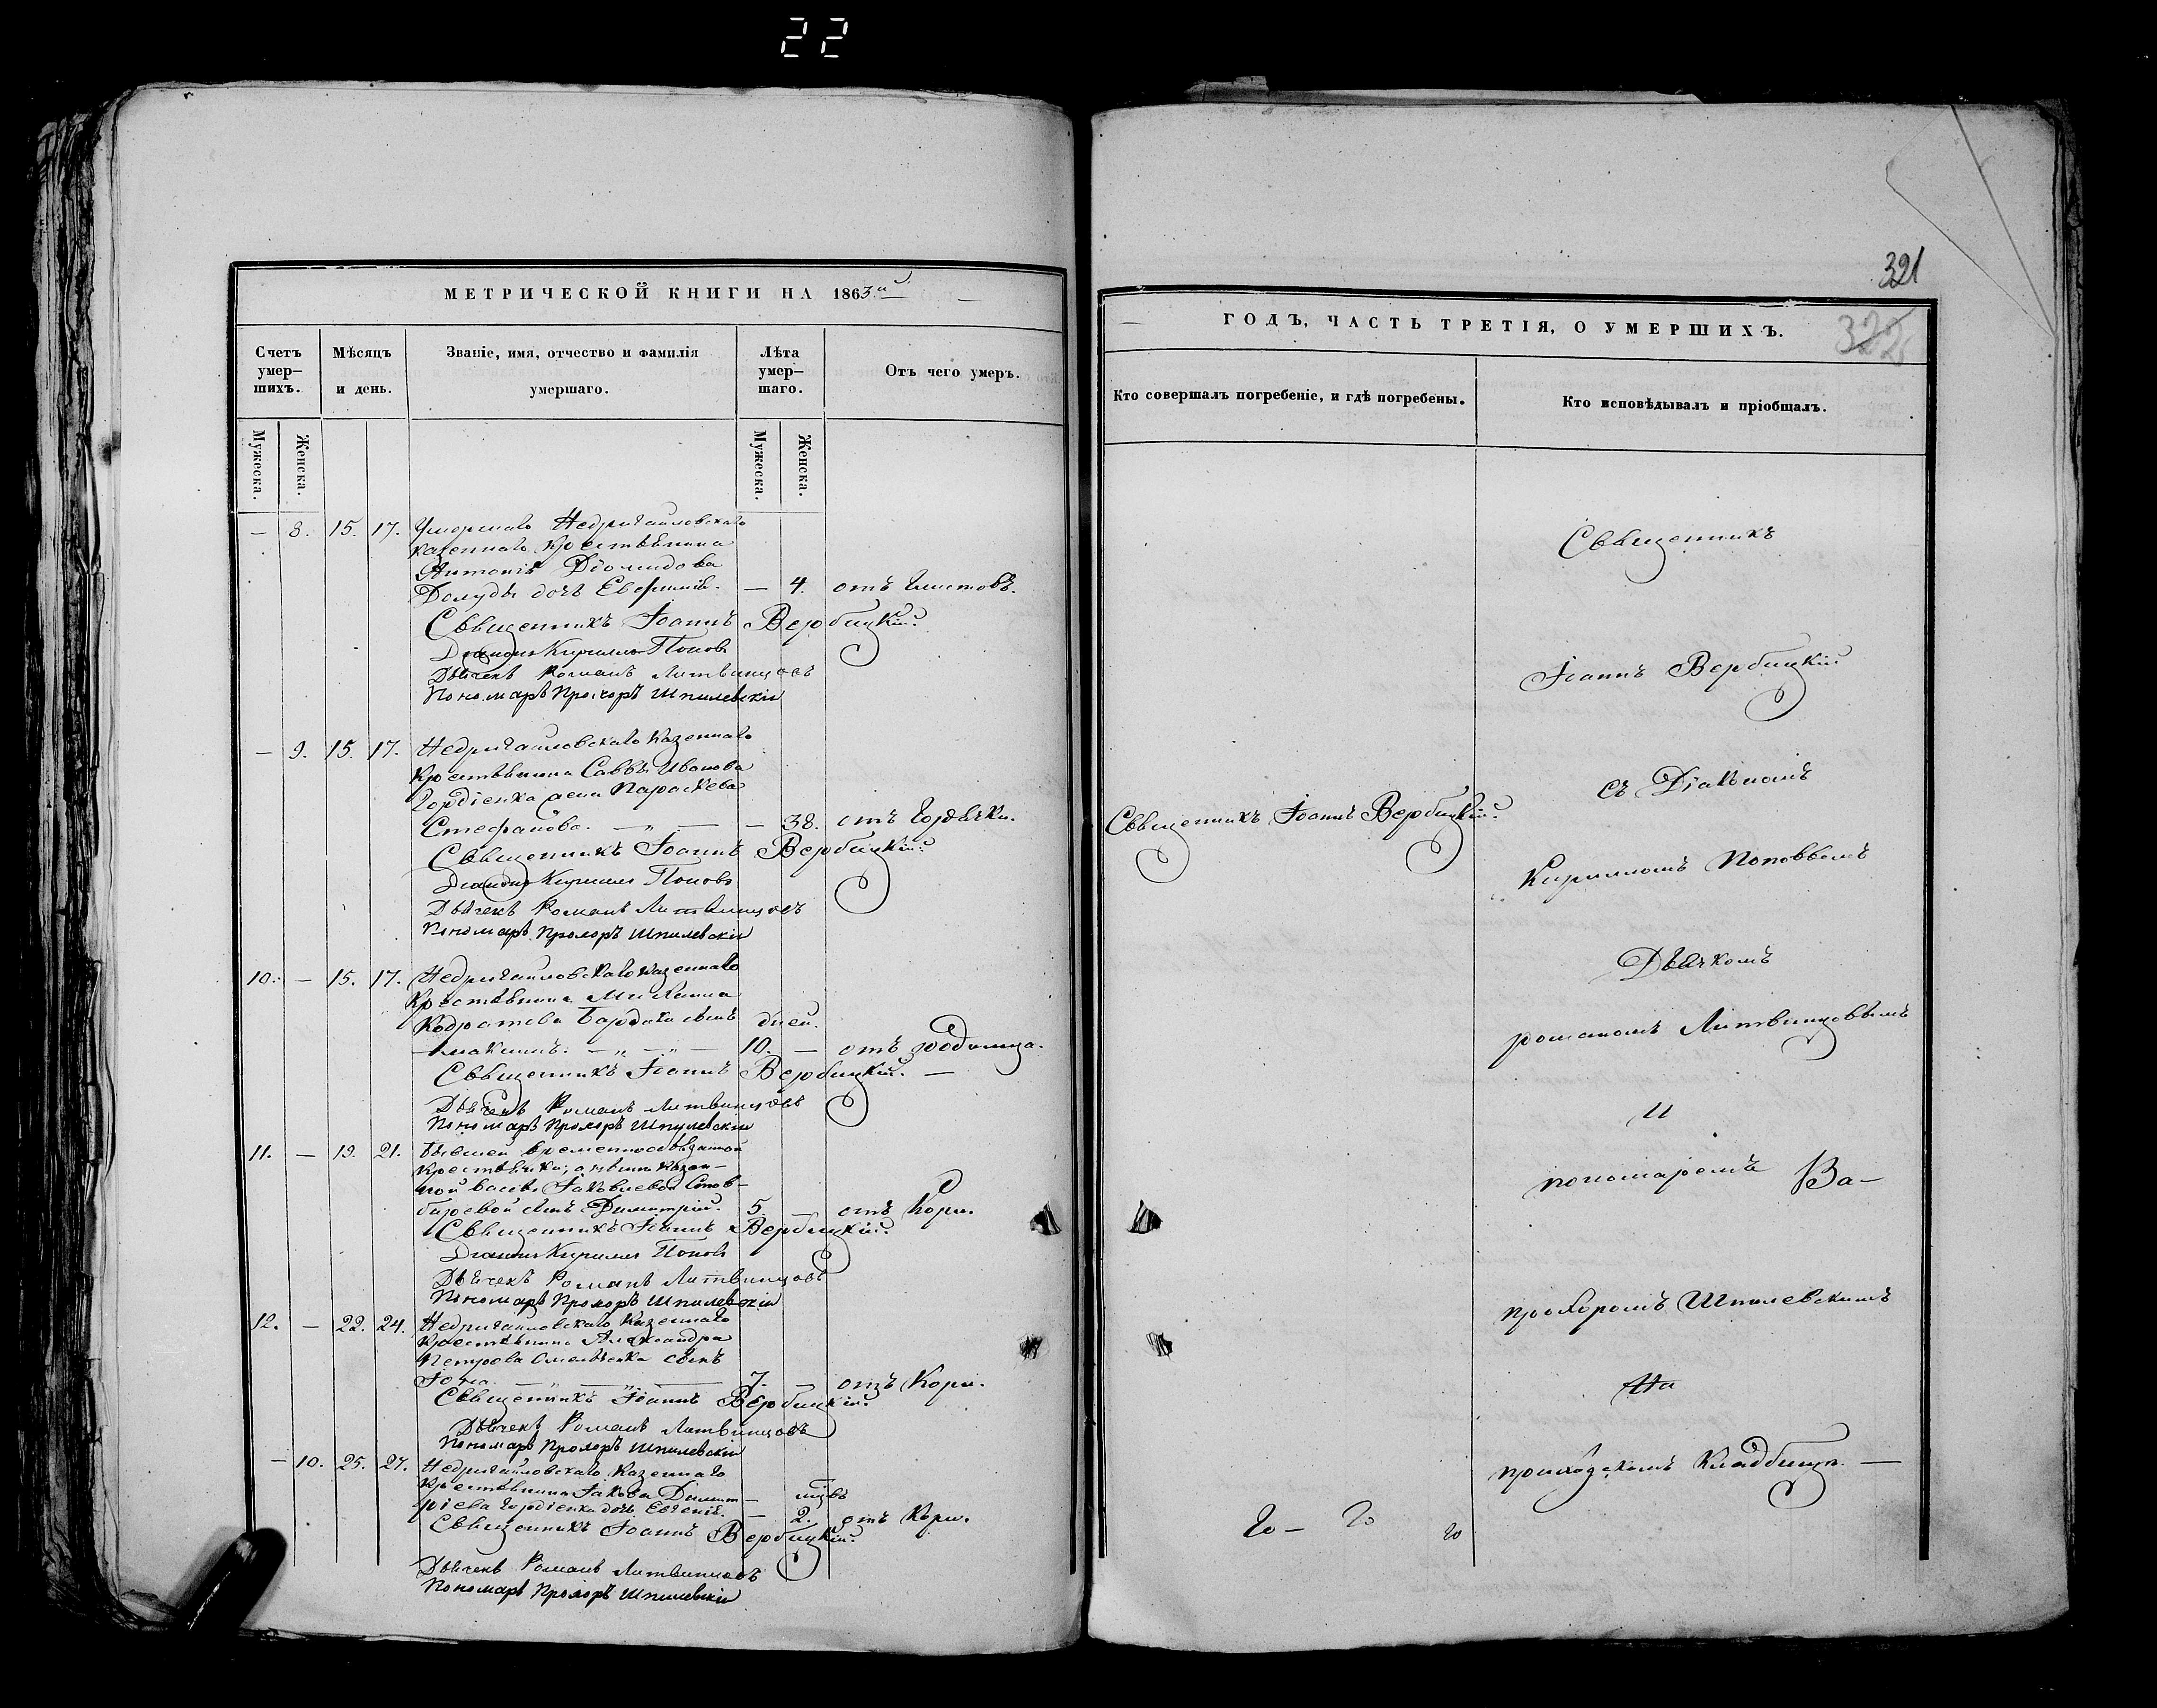 22
МЕТРИЧЕСКОЙ КНИГИ НА 1863й
Счетъ умер-шихъ.
Мѣсяцъ и день.
Званіе, имя, отчество и фамилія умершаго.
Лѣта умер-шаго.
Отъ чего умеръ.
Мужеска.
Женска.
Мужеска.
Женска.
— 8. 15. 17. Умершаго Недригайловскаго
казеннаго крестьянина
Антонія Діомидова
дочь Евфимія. — 4. отъ глистовъ.
Священникъ Іоаннъ Вербицкій
Діаконъ Кириллъ Поповъ
Дьячекъ Романъ Литвинцовъ
Пономарь Прохоръ Шпилевскій
— 9. 15. 17. Недригайловскаго казеннаго
крестьянина Саввы Иванова
Гордіенка жена Параскева
Стефанова. — „ — — 38. отъ горячки.
Священникъ Іоаннъ Вербицкій
Діаконъ Кириллъ Поповъ
Дьячекъ Романъ Литвинцовъ
Пономарь Прохоръ Шпилевскій
10. — 15. 17. Недригайловскаго казеннаго
крестьянина
сынъ дней.
Максимъ. — „ — „ — 10. — отъ родимца.
Священникъ Іоаннъ Вербицкій. —
Дьячекъ Романъ Литвинцовъ
Пономарь Прохоръ Шпилевскій
11. — 19. 21. Бывшей временнообязанной
крестьянки, а нынѣ казен-
ной Іаковлевой
сынъ Димитрій. 5. — отъ Кори.
Священникъ Іоаннъ Вербицкій
Діаконъ Кириллъ Поповъ
Дьячекъ Романъ Литвинцовъ
Пономарь Прохоръ Шпилевскій
12. — 22. 24. Недригайловскаго казеннаго
крестьянина Александра
Петрова Омельченка сынъ
Ѳома. — „ — „ — 7. — отъ Кори.
Священникъ Іоаннъ Вербицкій
Дьячекъ Романъ Литвинцовъ
Пономарь Прохоръ Шпилевскій
— 10. 25. 27. Недригайловскаго казеннаго
крестьянина Іакова Димит-
ріева Гордіенка дочь Евгенія. — 2. отъ Кори.
Священникъ Іоаннъ Вербицкій
Дьячекъ Романъ Литвинцовъ
Пономарь Прохоръ Шпилевскій
321
322
ГОДЪ, ЧАСТЬ ТРЕТІЯ, О УМЕРШИХЪ.
Кто совершалъ погребеніе, и гдѣ погребены.
Кто исповѣдывалъ и пріобщалъ.
Священникъ Іоаннъ Вербицкій.
Священникъ
Іоаннъ Вербицкій
съ Діакономъ
Кирилломъ Поповымъ
Дьячкомъ
Романомъ Литвинцовымъ
и
пономаремъ
Прохоромъ Шпилевскимъ
На
приходскомъ Кладбищѣ. —